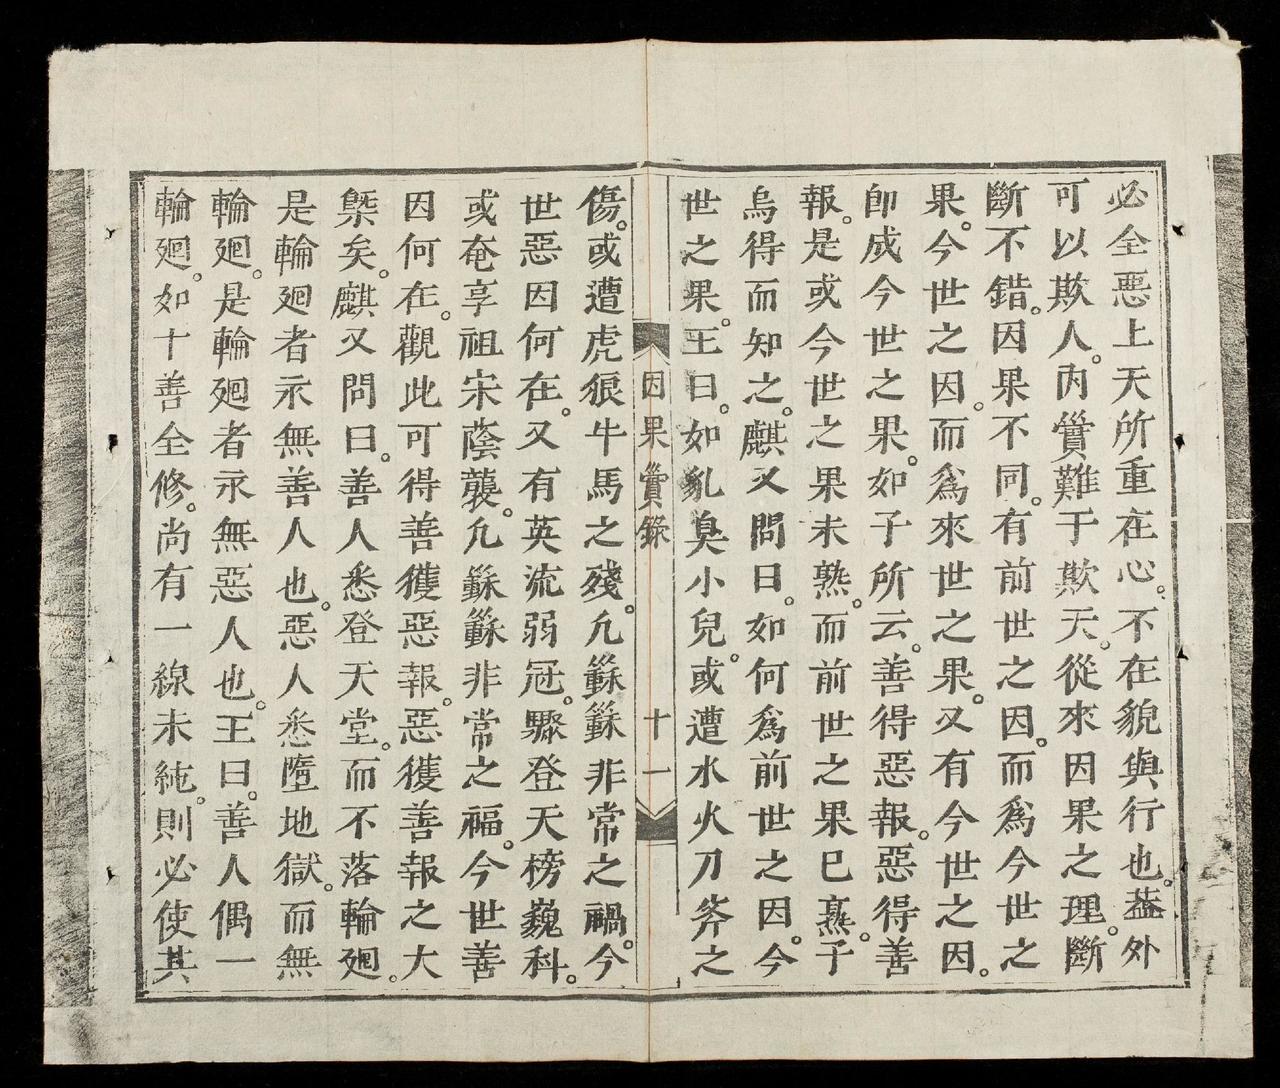 必全惡上天所重在心。不在貌與行也。蓋外
可以欺人。內實難于欺天。從來因果之理。斷
斷不錯。因果不同。有前世之因。而爲今世之
果。今世之因。而爲來世之果。又有今世之因。
卽成今世之果。如子所云。善得惡報。惡得善
報。是或今世之果未熟。而前世之果已熟。子
烏得而知之。麒又問曰。如何爲前世之因。今
世之果。王曰。如乳臭小兒。或遭水火刀斧之
因果實錄
十一
傷。或遭虎狼牛馬之殘。凢穌穌非常之禍。今
世惡因何在。又有英流弱冠。驟登天榜巍科。
或奄享祖宗蔭襲。凢穌穌非常之福。今世善
因何在。觀此可得善獲惡報。惡獲善報之大
槩矣。麒又問曰。善人悉登天堂。而不落輪廻。
是輪廻者永無善人也。惡人悉墮地獄。而無
輪廻。是輪廻者永無惡人也。王曰。善人偶一
輪廻。如十善全修。尚有一線未純。則必使其